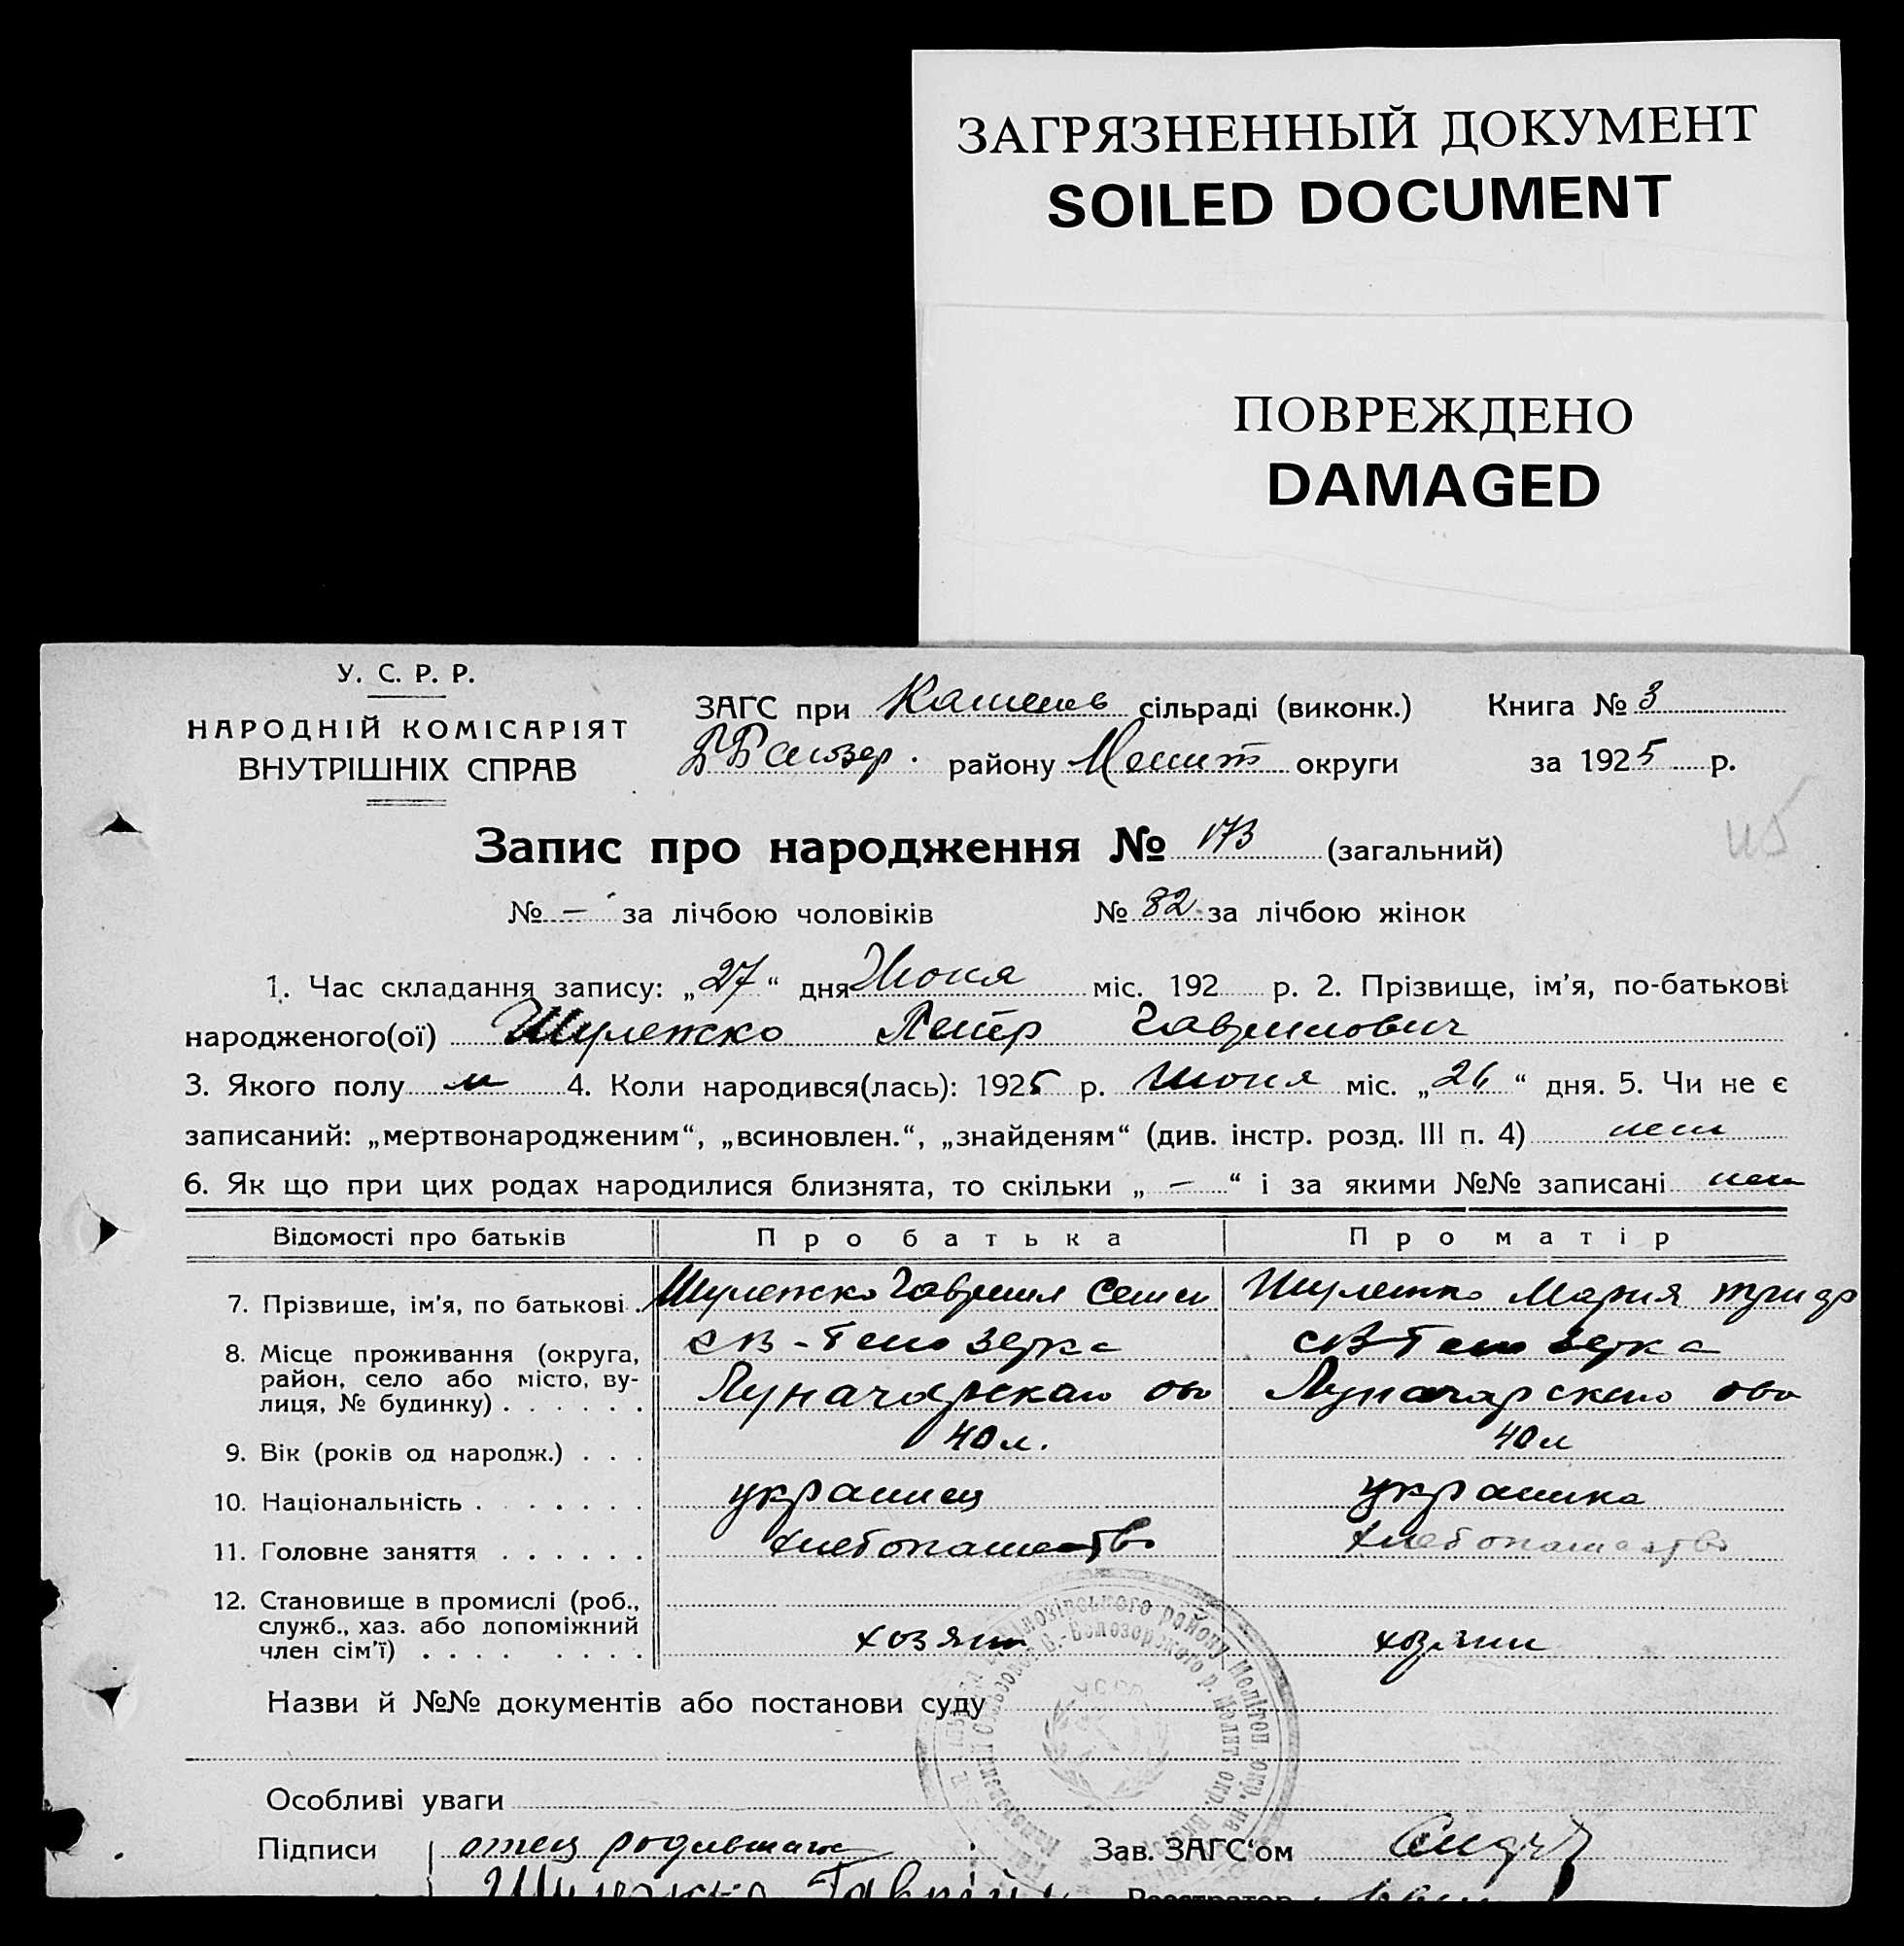 ЗАГРЯЗНЕННЫЙ ДОКУМЕНТ
SOILED DOCUMENT
ПОВРЕЖДЕНО
DAMAGED
У. С. Р. Р.
НАРОДНІЙ КОМІСАРІЯТ
ВНУТРІШНІХ СПРАВ
ЗАГС при сільраді (виконк.)
Книга № 3
району Мелит округи
за 1925 р.
Запис про народження № 173 (загальний)
№ – за лічбою чоловіків № 82 за лічбою жінок
1. Час складання запису: „27“ дня Июня міс. 192 р. 2. Прізвище, ім'я, по-батькові
народженого(ої) Шулежко Петр Гаврилович
3. Якого полу м 4. Коли народився(лась): 1925 р. Июня міс. „26“ дня. 5. Чи не є
записаний: „мертвонародженим“, „всиновлен.“, „знайденям“ (див. інстр. розд. III п. 4) нет
6. Як що при цих родах народилися близнята, то скільки „ – “ і за якими №№ записані нет
Відомості про батьків Про батька Про матір
7. Прізвище, ім'я, по батькові Шулежко Гаврил Семен Шулежко Мария
8. Місце проживання (округа, район, село або місто, вулиця, № будинку) . . . . . .
с В-Белозерка с В-Белозерка
Луначарскаго Луначарского
9. Вік (років од народж.) . . . 40 л. 40 л
10. Національність . . . . . . . украинец украинка
11. Головне заняття . . . . . . хлебопашество хлебопашество
12. Становище в промислі (роб., служб., хаз. або допоміжний член сім'ї) . . . . . . . . хозяин хозяин
Назви й №№ документів або постанови суду
Особливі уваги
Підписи отец Зав. ЗАГС'ом
Шулежко Гаврійл Реєстратор